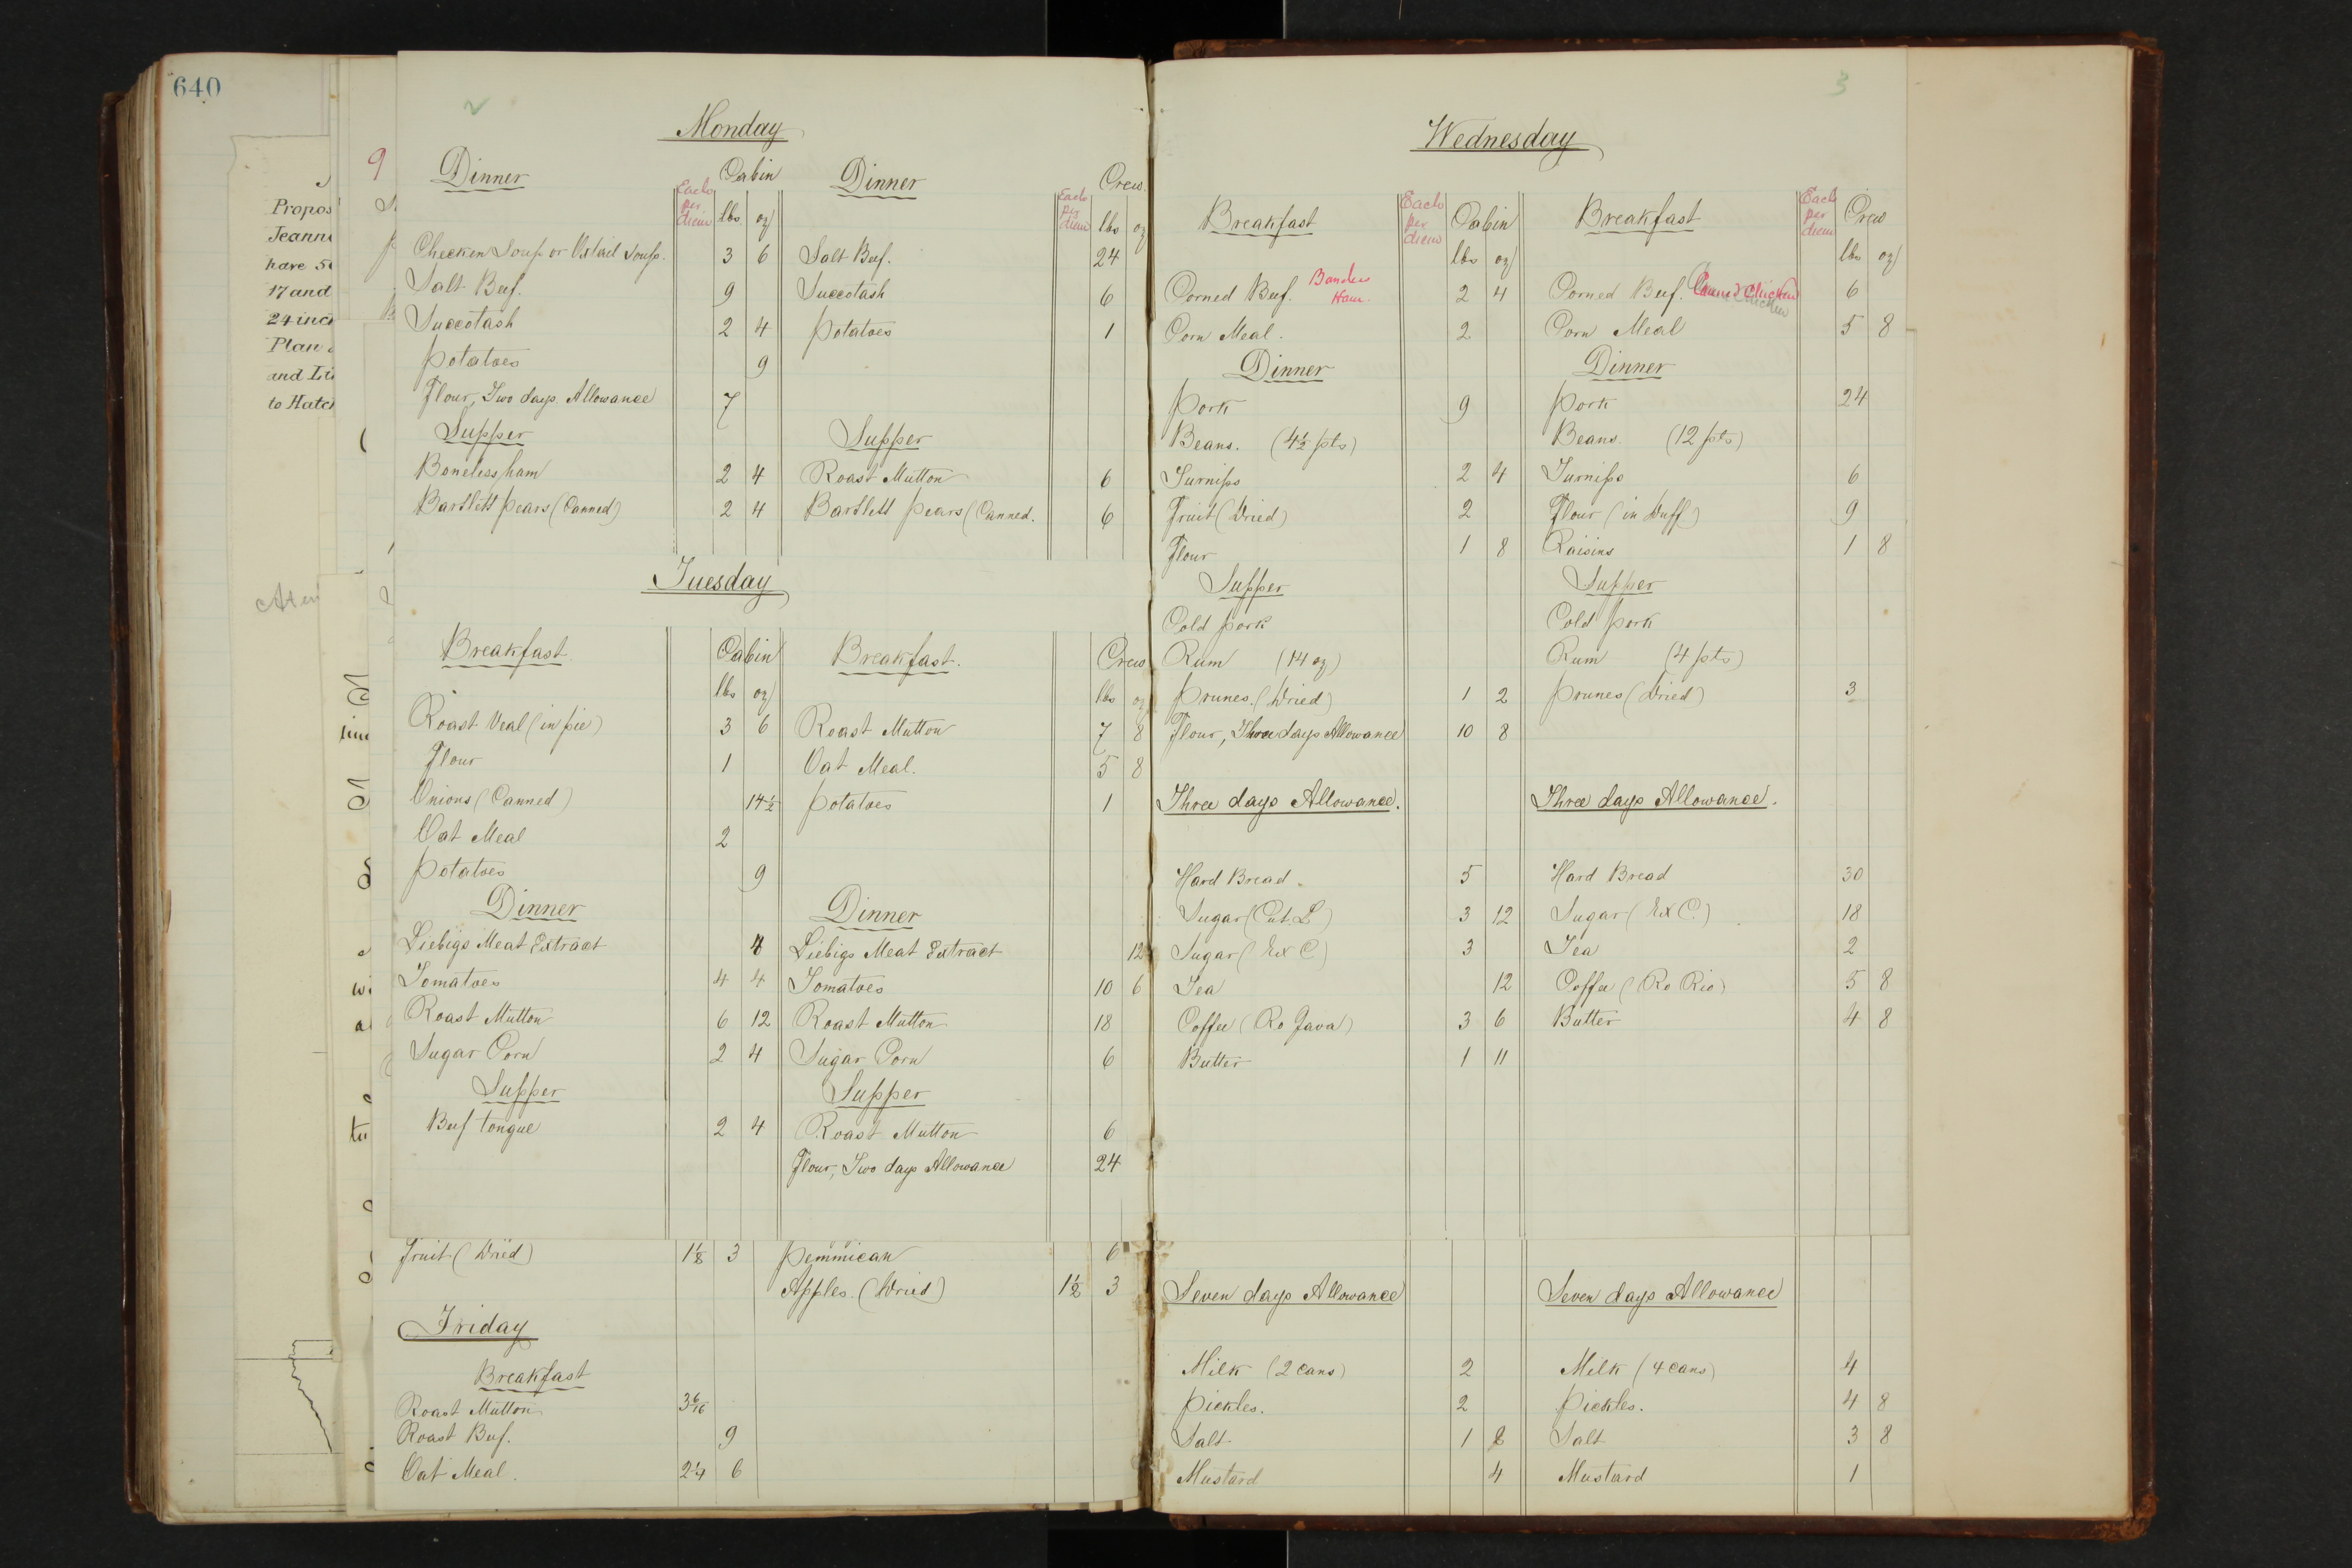 640
Propos
Jeann
have 5
17 and
24 inc
Plan
and Li
to Hatc
9
2
Monday
Dinner Cabin Dinner Crew
Each per diem lbs oz Each per diem lbs oz
Chicken Soup or Oxtail Soup. 3 6 Salt Beef. 24
Salt Beef. 9 Succotash 6
Succotash 2 4 Potatoes 1
Potatoes 9
Flour, Two days Allowance 7
Supper Supper
Boneless ham 2 4 Roast Mutton 6
Bartlett pears (Canned) 2 4 Bartlett pears (Canned. 6
Tuesday
Breakfast Cabin Breakfast. Crew
lbs oz lbs oz
Roast Veal (in pie) 3 6 Roast Mutton 7 8
Flour 1 Oat Meal. 5 8
Onions (Canned) 14½ Potatoes 1
Oat Meal 2
Potatoes 9
Dinner Dinner
Liebigs Meat Extract 4 Liebigs Meat Extract 12
Tomatoes 4 4 Tomatoes 10 6
Roast Mutton 6 12 Roast Mutton 18
Sugar Corn 2 4 Sugar Corn 6
Supper Supper
Beef tongue 2 4 Roast Mutton 6
Flour, Two days Allowance 24
Fruit (Dried) 1⅛ 3 Pemmican 6
Apples. (Dried) 1½ 3
Friday
Breakfast
Roast Mutton 3 6/16
Roast Beef. 9
Oat Meal. 2¼ 6
3
Wednesday
Breakfast Each per diem Cabin Breakfast Each per diem Crew
lbs oz lbs oz
Corned Beef. Ham. 2 4 Corned Beef. Canned Chicken 6
Corn Meal. 2 Corn Meal 5 8
Dinner Dinner
Pork 9 Pork 24
Beans. (4½ pts) Beans (12 pts)
Turnips 2 4 Turnips 6
Fruit (Dried) 2 Flour (in Duff) 9
Flour 1 8 Raisins 1 8
Supper Supper
Cold pork Cold pork
Rum (14 oz) Rum (4 pts)
Prunes. (Dried) 1 2 Prunes (Dried) 3
Flour, Three days Allowance 10 8
Three days Allowance. Three days Allowance.
Hard Bread. 5 Hard Bread 30
Sugar (Cut L) 3 12 Sugar (Ex C.) 18
Sugar (Ex C) 3 Tea 2
Tea 12 Coffee (Ro Rio) 5 8
Coffee (Ro Java) 3 6 Butter 4 8
Butter 1 11
Seven days Allowance Seven days Allowance
Milk (2 cans) 2 Milk (4 cans) 4
Pickles. 2 Pickles. 4 8
Salt 1 8 Salt 3 8
Mustard 4 Mustard 1